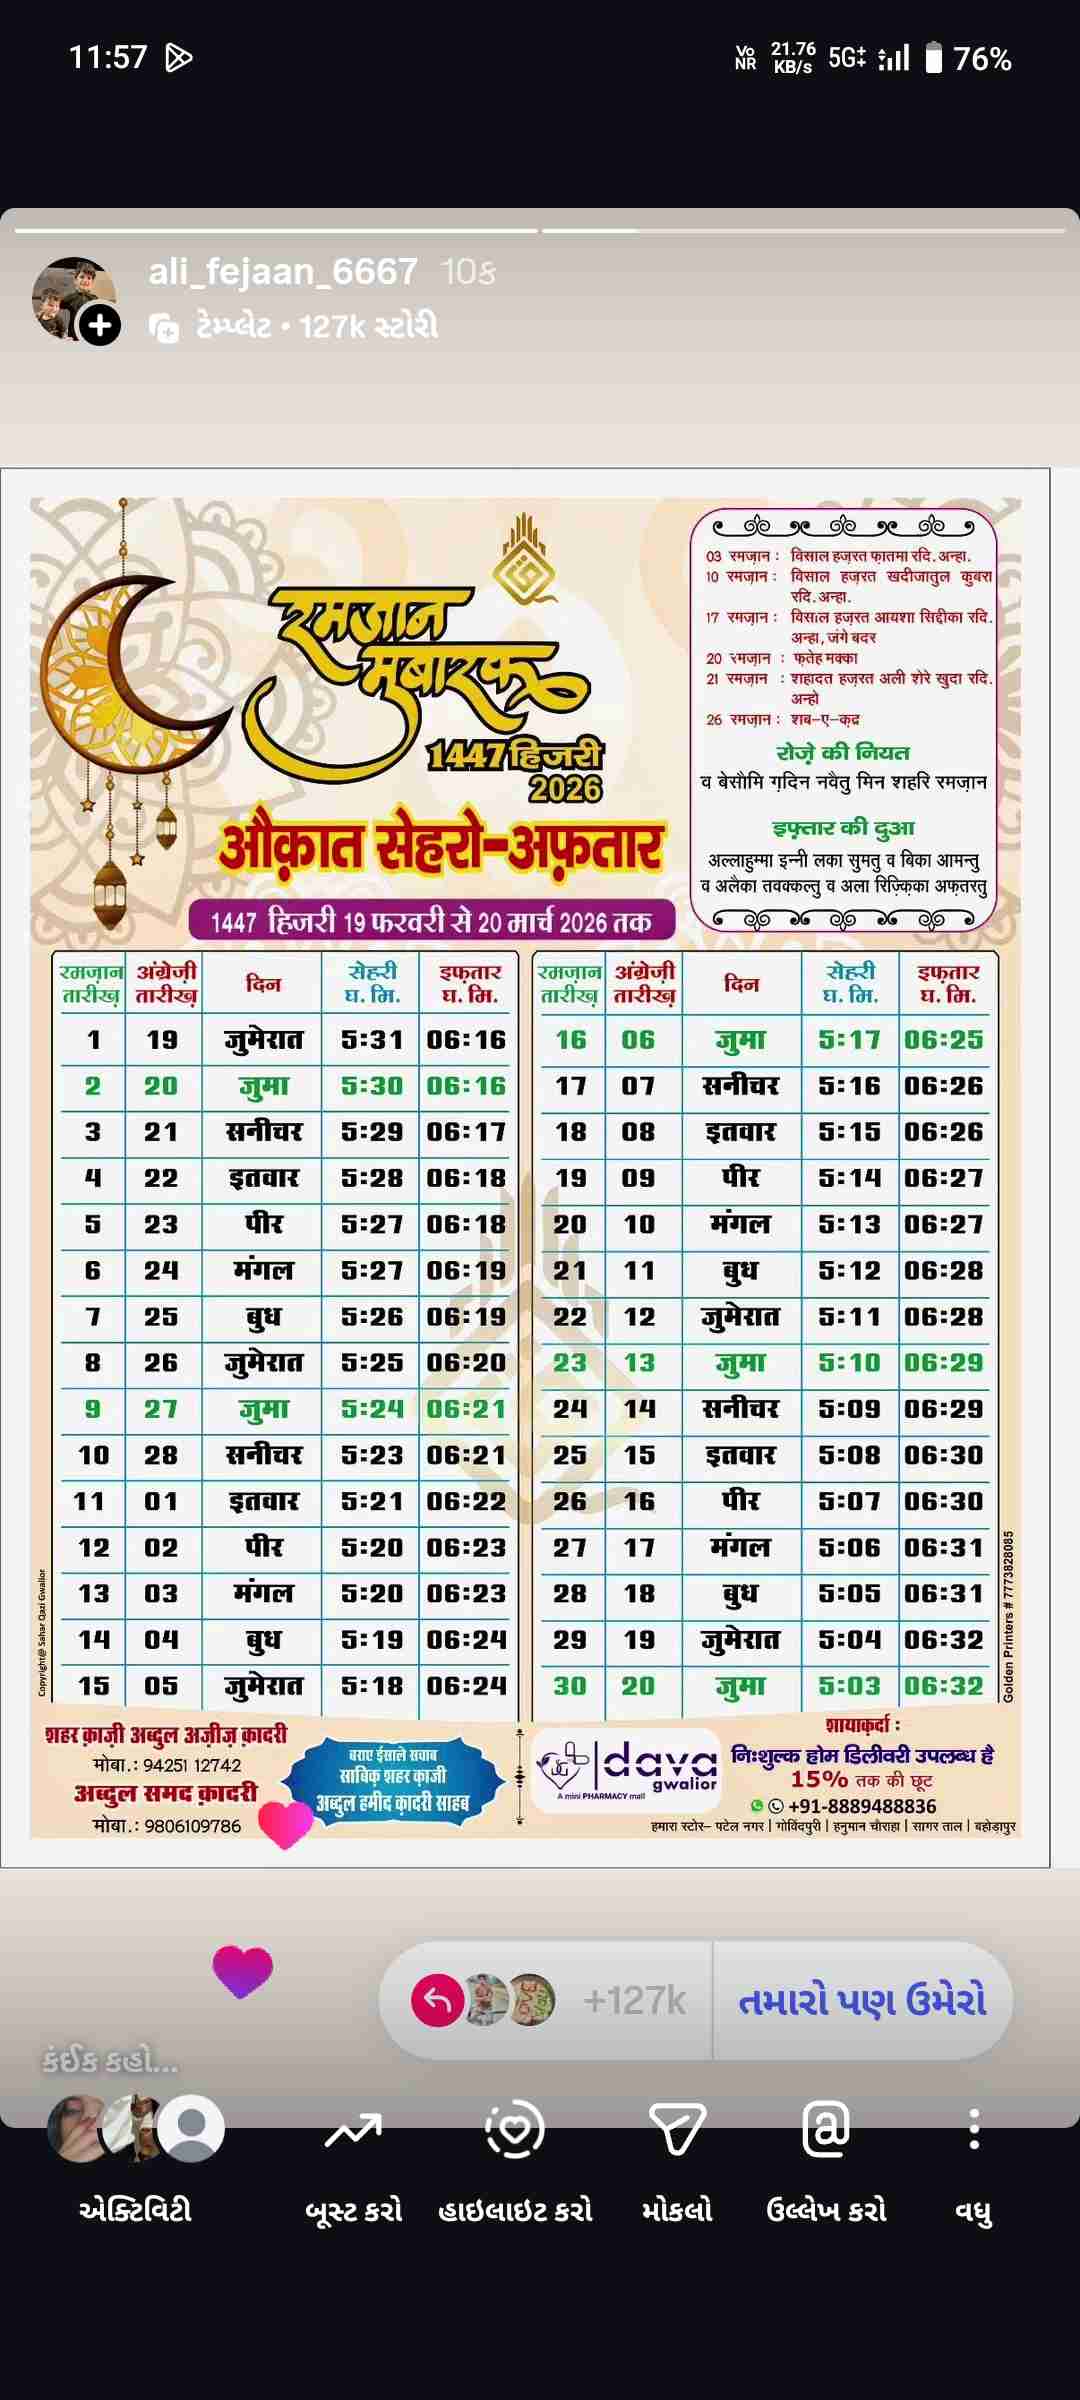 11:57
Vo NR 21.76 KB/s 5G 76%
ali_fejaan_6667 10ક
ટેમ્પ્લેટ • 127k સ્ટોરી
रमज़ान
मुबारक
1447 हिजरी
2026
औक़ात सेहरो-अफ़तार
1447 हिजरी 19 फरवरी से 20 मार्च 2026 तक
03 रमज़ान : विसाल हज़रत फ़ातमा रदि. अन्हा.
10 रमज़ान : विसाल हज़रत खदीजातुल कुवरा
रदि. अन्हा.
17 रमज़ान : विसाल हज़रत आयशा सिद्दीका रदि.
अन्हा, जंगे बदर
20 रमज़ान : फ़तेह मक्का
21 रमज़ान : शहादत हज़रत अली शेरे खुदा रदि.
अन्हो
26 रमज़ान : शब-ए-क़द्र
रोज़े की नियत
व बेसौमि ग़दिन नवैतु मिन शहरि रमज़ान
इफ़्तार की दुआ
अल्लाहुम्मा इन्नी लका सुमतु व बिका आमन्तु
व अलैका तवक्कल्तु व अला रिज़्क़िका अफ़तरतु
रमज़ान तारीख़ अंग्रेज़ी तारीख़ दिन सेहरी घ. मि. इफ़तार घ. मि.
1 19 जुमेरात 5:31 06:16
2 20 जुमा 5:30 06:16
3 21 सनीचर 5:29 06:17
4 22 इतवार 5:28 06:18
5 23 पीर 5:27 06:18
6 24 मंगल 5:27 06:19
7 25 बुध 5:26 06:19
8 26 जुमेरात 5:25 06:20
9 27 जुमा 5:24 06:21
10 28 सनीचर 5:23 06:21
11 01 इतवार 5:21 06:22
12 02 पीर 5:20 06:23
13 03 मंगल 5:20 06:23
14 04 बुध 5:19 06:24
15 05 जुमेरात 5:18 06:24
रमज़ान तारीख़ अंग्रेज़ी तारीख़ दिन सेहरी घ. मि. इफ़तार घ. मि.
16 06 जुमा 5:17 06:25
17 07 सनीचर 5:16 06:26
18 08 इतवार 5:15 06:26
19 09 पीर 5:14 06:27
20 10 मंगल 5:13 06:27
21 11 बुध 5:12 06:28
22 12 जुमेरात 5:11 06:28
23 13 जुमा 5:10 06:29
24 14 सनीचर 5:09 06:29
25 15 इतवार 5:08 06:30
26 16 पीर 5:07 06:30
27 17 मंगल 5:06 06:31
28 18 बुध 5:05 06:31
29 19 जुमेरात 5:04 06:32
30 20 जुमा 5:03 06:32
Copyright@ Sahar Qazi Gwalior
Golden Printers # 7773828085
शहर क़ाज़ी अब्दुल अज़ीज़ क़ादरी
मोबा.: 94251 12742
अब्दुल समद क़ादरी
मोबा.: 9806109786
बराए ईसाले सवाब
साबिक़ शहर क़ाजी
अब्दुल हमीद क़ादरी साहब
dava
gwalior
A mini PHARMACY mall
शायाकर्दा :
निःशुल्क होम डिलीवरी उपलब्ध है
15% तक की छूट
+91-8889488836
हमारा स्टोर– पटेल नगर | गोविंदपुरी | हनुमान चौराहा | सागर ताल | बहोड़ापुर
+127k તમારો પણ ઉમેરો
કંઈક કહો...
એક્ટિવિટી બૂસ્ટ કરો હાઇલાઇટ કરો મોકલો ઉલ્લેખ કરો વધુ